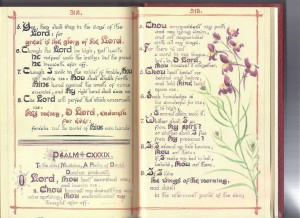 312.
5. Yea, they shall sing in the ways of the
Lord: for
great is the glory of the Lord.
6. Though the Lord be high, yet hath
he respect unto the lowly: but the proud
he knoweth afar off.
7. Though I walk in the midst of trouble, thou
wilt revive me: thou shalt stretch forth
thine hand against the wrath of mine
enemies, and thy right hand shall save me.
8. The Lord will perfect that which concerneth
me:
thy mercy, O Lord, endureth
for ever:
forsake not the works of thine own hands.
PSALM CXXXIX.
To the chief Musician, A Psalm of David.
O Lord, thou hast searched me, and
known me.
2. Thou knowest my downsitting and
mine uprising, thou understandest my
thought afar off.
313.
3. Thou compassest my path
and my lying down,
and art acquainted
with all my ways.
4. For there is not
a word in my tongue, but, lo,
O Lord,
thou knowest it altogether.
5. Thou hast beset me
behind and before,
and laid thine hand
upon me.
6. Such knowledge is
too wonderful for me;
it is high,
I cannot attain unto it.
7. Whither shall I go
from thy spirit?
or whither shall I flee
from thy presence?
8. If I ascend up into
heaven, thou art there:
if I make my bed in hell,
behold, thou art there.
9. If I take
the wings of the morning,
and dwell
in the uttermost parts of the sea;